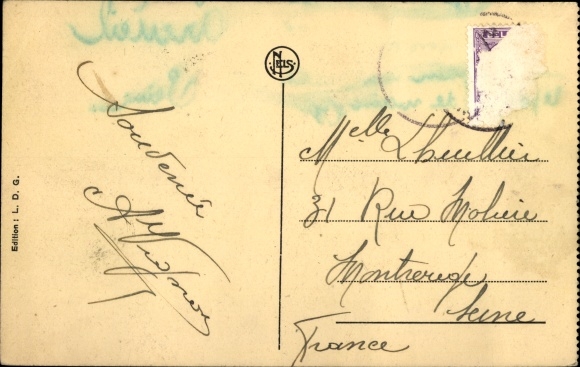 Edition : L. D. G.
NELS
Souvenir
Melle Lhuillier
31 Rue Molière
Montrouge
Seine
France